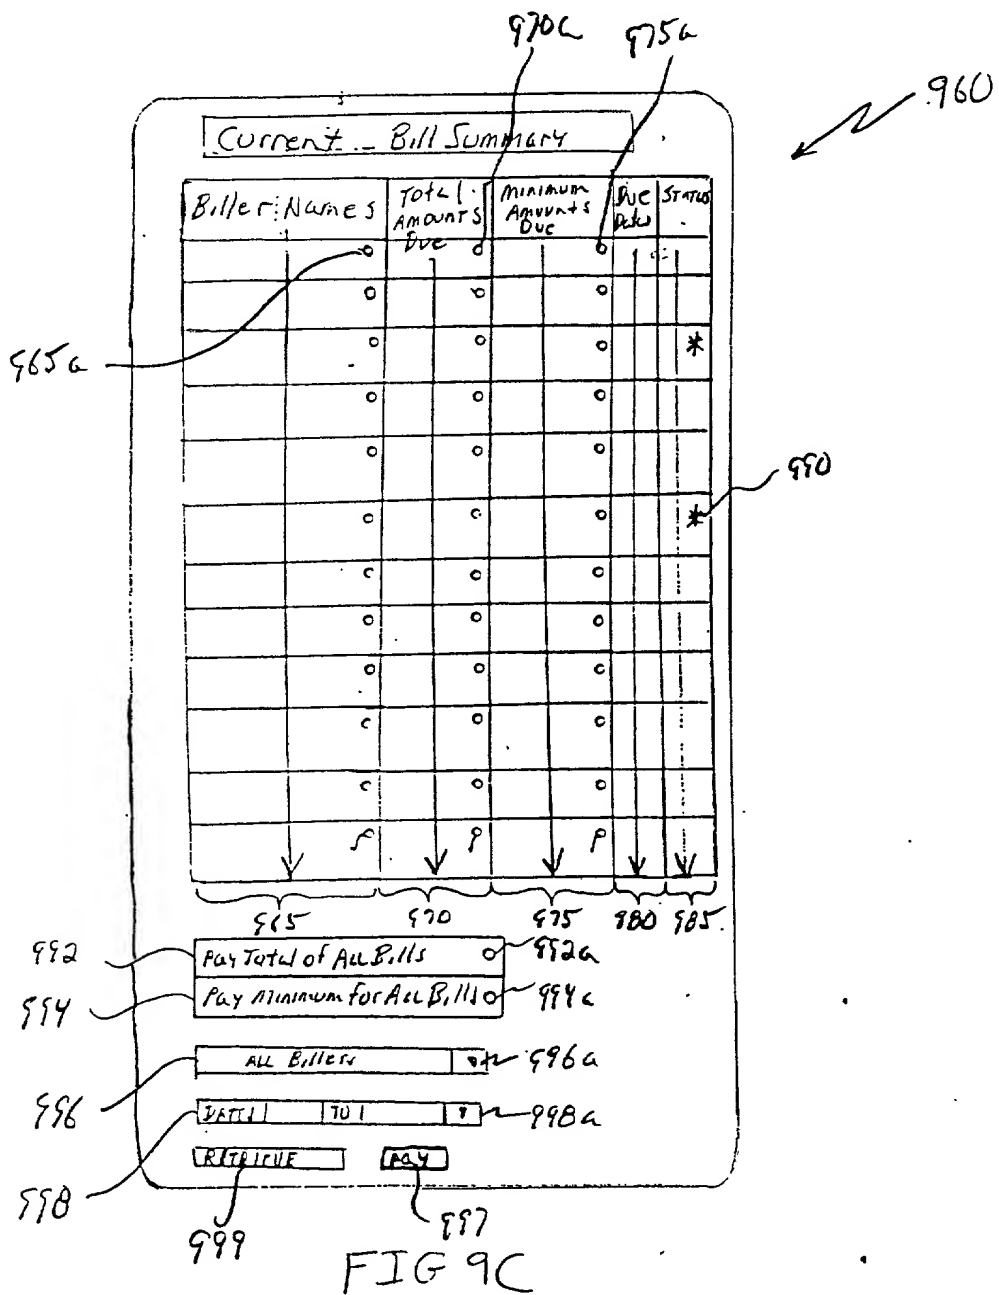 970a
975a
960
Current Bill Summary
Biller Names
Total Amounts Due
Minimum Amounts Due
Due Dates
Status
965a
*
990
*
965
970
975
980
985
992
Pay Total of All Bills
992a
994
Pay Minimum for All Bills
994a
996
All Billers
996a
998
Dates
To
998a
Retrieve
Pay
999
997
FIG 9C